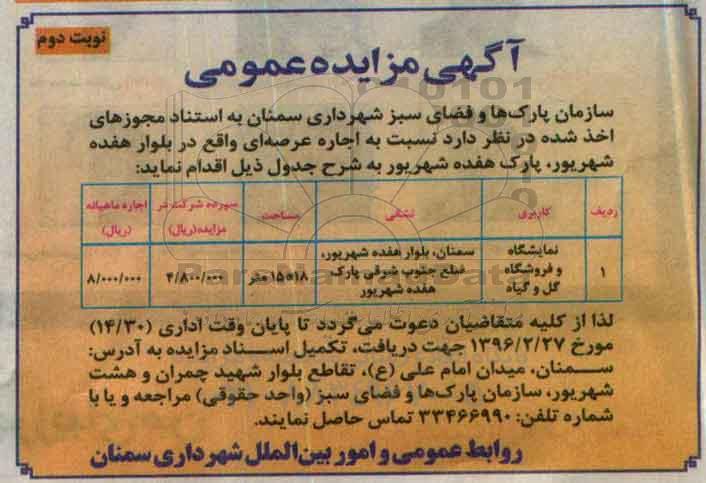 نوبت دوم
آگهی مزایده عمومی
سازمان پارک‌ها و فضای سبز شهرداری سمنان به استناد مجوزهای
اخذ شده در نظر دارد نسبت به اجاره عرصه‌ای واقع در بلوار هفده
شهریور، پارک هفده شهریور به شرح جدول ذیل اقدام نماید:
ردیف کاربری نشانی مساحت سپرده شرکت در مزایده(ریال) اجاره ماهیانه (ریال)
۱ نمایشگاه و فروشگاه گل و گیاه سمنان، بلوار هفده شهریور، ضلع جنوب شرقی پارک هفده شهریور ۱۸*۱۵متر ۴/۸۰۰/۰۰۰ ۸/۰۰۰/۰۰۰
لذا از کلیه متقاضیان دعوت می‌گردد تا پایان وقت اداری (۱۴/۳۰)
مورخ ۱۳۹۶/۲/۲۷ جهت دریافت، تکمیل اسناد مزایده به آدرس:
سمنان، میدان امام علی (ع)، تقاطع بلوار شهید چمران و هشت
شهریور، سازمان پارک‌ها و فضای سبز (واحد حقوقی) مراجعه و یا با
شماره تلفن: ۳۳۴۶۶۹۹۰ تماس حاصل نمایند.
روابط عمومی و امور بین‌الملل شهرداری سمنان